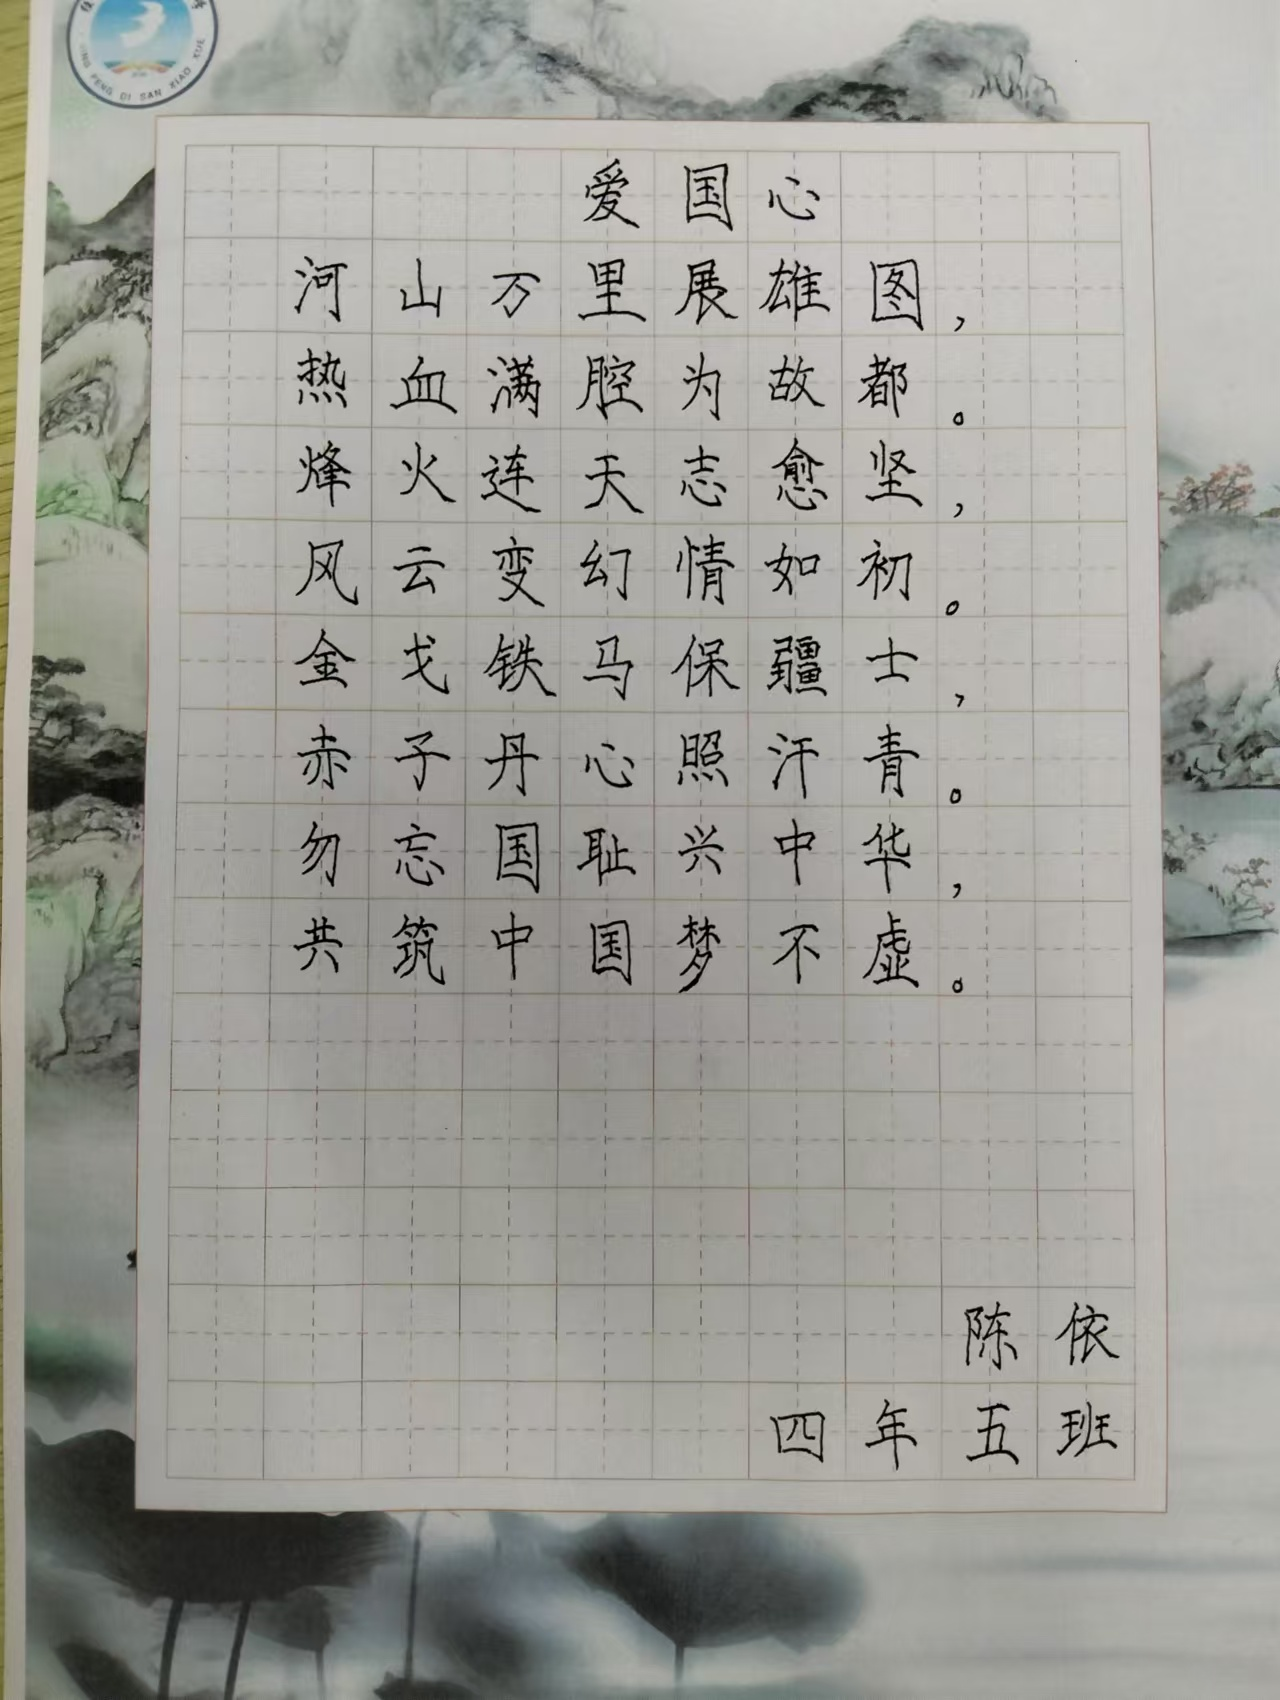 JING PENG DI SAN XIAO XUE
爱国心
河山万里展雄图，
热血满腔为故都。
烽火连天志愈坚，
风云变幻情如初。
金戈铁马保疆士，
赤子丹心照汗青。
勿忘国耻兴中华，
共筑中国梦不虚。
陈依
四年五班